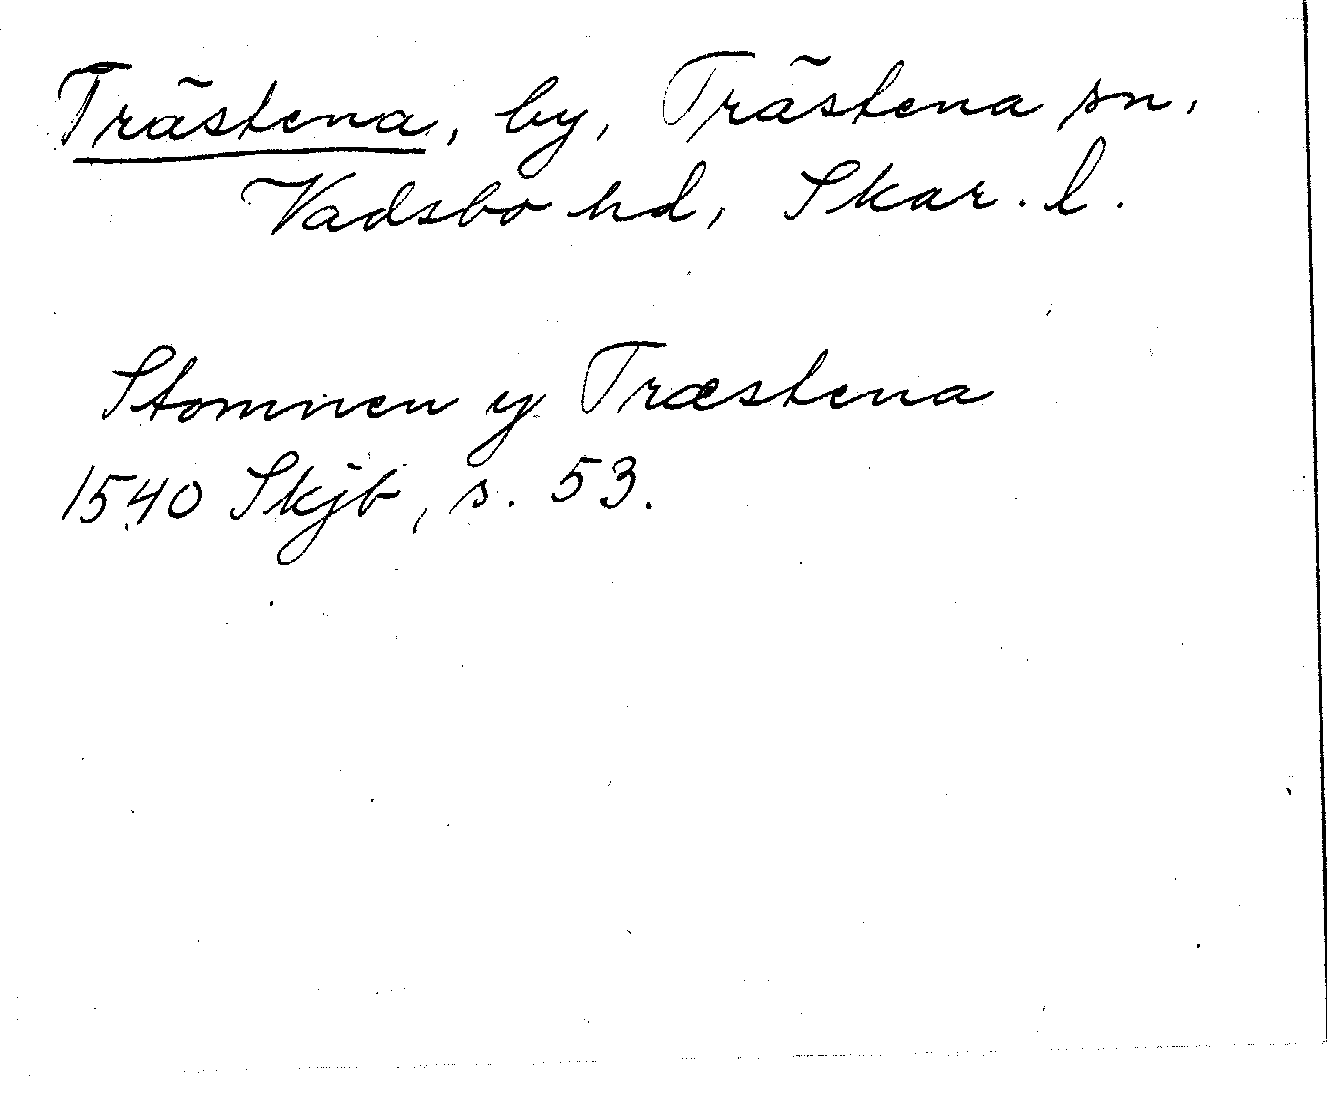 Trästena, by, Trästena sn,
Vadsbo hd, Skar. l.
Stomnen y Træstena
1540 Skjb, s. 53.